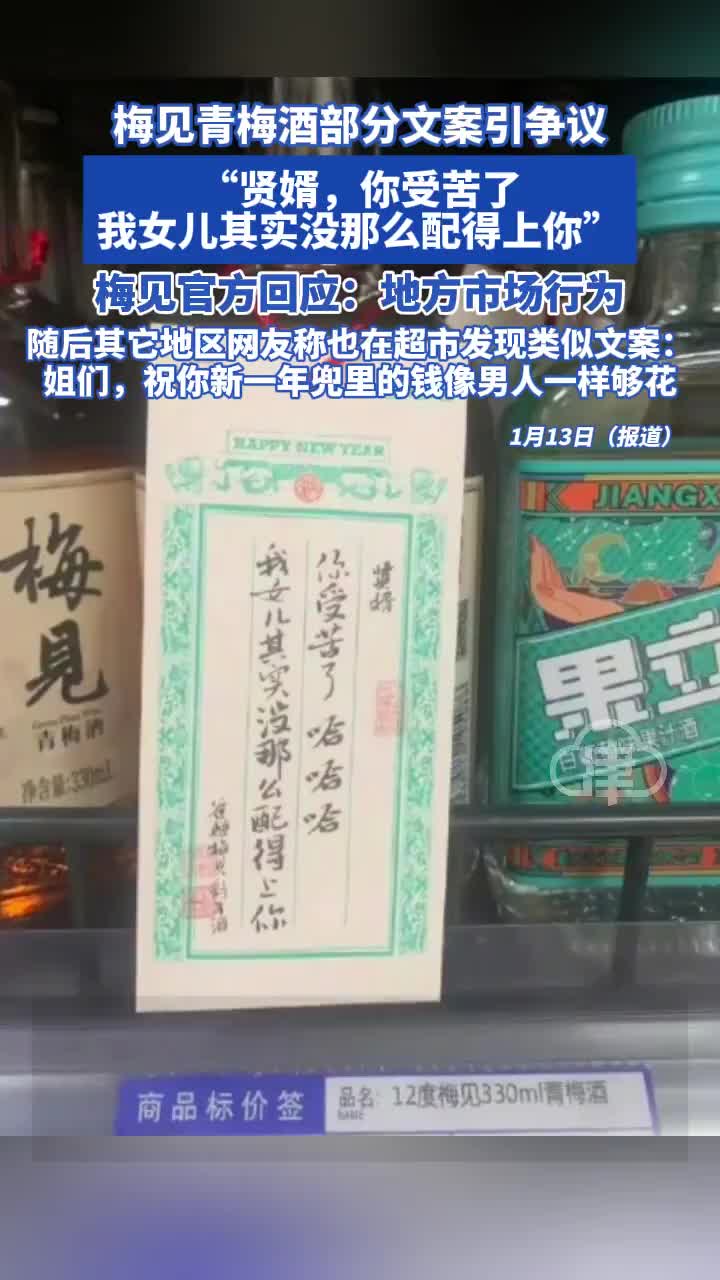 梅见青梅酒部分文案引争议
“贤婿，你受苦了
我女儿其实没那么配得上你”
梅见官方回应：地方市场行为
随后其它地区网友称也在超市发现类似文案：
姐们，祝你新一年兜里的钱像男人一样够花
1月13日（报道）
HAPPY NEW YEAR
贤婿
你受苦了 哈哈哈
我女儿其实没那么配得上你
梅見
青梅酒
净含量:330ml
JIANGX
果立
津
商品标价签
品名: 12度梅见330ml青梅酒
NAME